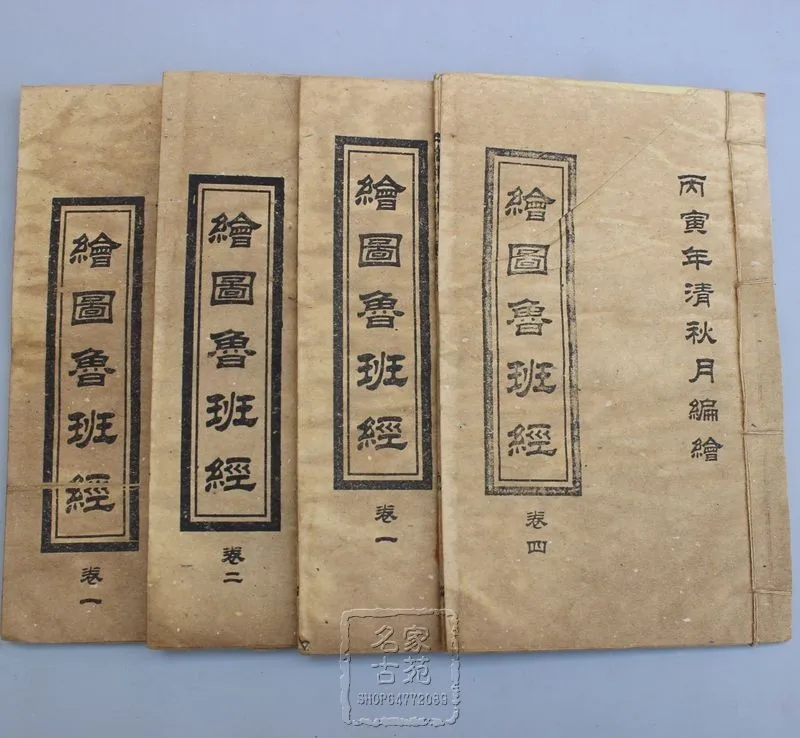 丙寅年清秋月編繪
繪圖魯班經
卷四
繪圖魯班經
卷一
繪圖魯班經
卷二
繪圖魯班經
卷一
名家
古苑
SHOP64772089